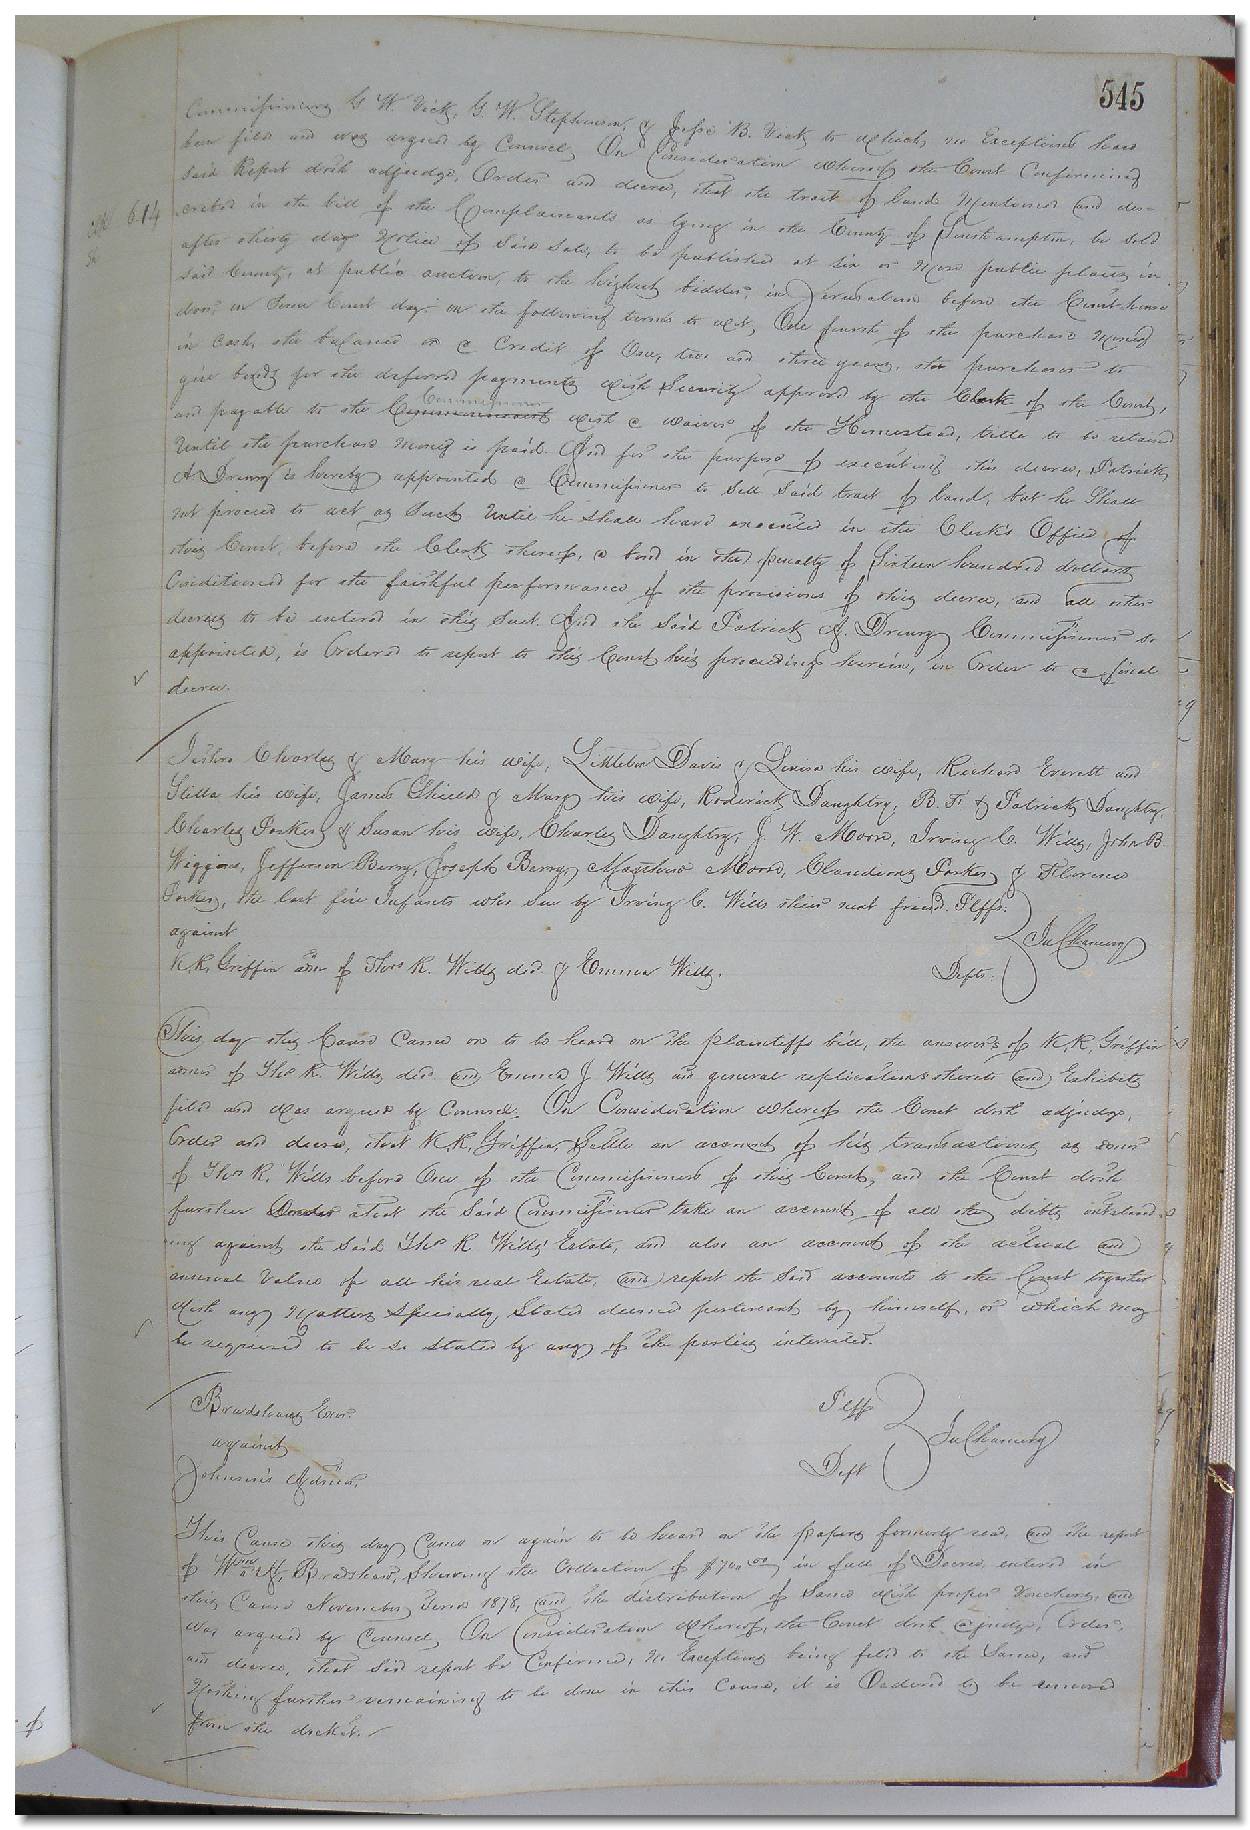 545
Commissioners G. W. Vick, G. W. Stephenson, & Jesse B. Vick to which no Exceptions have
been filed and was argued by Counsel, On Consideration whereof the Court Confirming
said Report doth adjudge, Order and decree, that the tract of land Mentioned and des-
cribed in the bill of the Complainants as lying in the County of Southampton, be sold
614
after thirty days Notice of said sale, to be published at six or more public places in
said County, at public auction, to the highest bidder, in Jerusalem before the Court-house
door, on Some Court day, on the following terms to wit, One fourth of the purchase Money
in Cash, the balance on a Credit of One, two and three years, the purchaser to
give bonds for the deferred payments with Security approved by the Clerk of the Court,
Commissioner
and payable to the with a waiver of the Homestead, title to be retained
Until the purchase money is paid. And for the purpose of executing this decree, Patrick
A Drewry is hereby appointed a Commissioner to sell said tract of land, but he Shall
not proceed to act as Such Until he shall have executed in the Clerk's Office of
this Court, before the Clerk thereof, a bond in the penalty of Sixteen hundred dollars
Conditioned for the faithful performance of the provisions of this decree, and all other
decrees to be entered in this Suit. And the Said Patrick A. Drewry Commissioner so
appointed, is Ordered to report to this Court his proceedings herein, in Order to a final
decree.
Charley & Mary his wife, Littleton Davis & Louisa his wife, Richard Everett and
his wife, James Shield & Mary his wife, Roderick Daughtry, B. F. & Patrick Daughtry,
Charley Parker & Susan his wife, Charley Daughtry, J. W. Moore, Irving C. Wills, John B.
Wiggins, Jefferson Barry, Joseph Barry, Matthew Moore, Parker & Florence
Parker, the last five Infants who Sue by Irving C. Wills their next friend. Plffs.
against
In Chancery
K. R. Griffin admr of Thos R. Wills decd. & Emma Wills. Defts.
This day this Cause Came on to be heard on the plaintiffs bill, the answers of K. R. Griffin
admr of Thos R. Wills decd. and Emma J. Wills and general replications thereto and Exhibits
filed and was argued by Counsel. On Consideration whereof the Court doth adjudge,
Order and decree, that K. R. Griffin, Settle an account of his transactions as admr
of Thos R. Wills before One of the Commissioners of this Court, and the Court doth
further Order that the Said Commissioner take an account of all the debts outstand-
ing against the Said Thos R. Wills' Estate, and also an account of the actual and
annual Value of all his real Estate, and report the Said accounts to the Court together
with any Matters Specially Stated deemed pertinent by himself, or which may
be required to be so stated by any of the parties interested.
Bradshaws Exor. Plff
against
In Chancery
Johnson's Admr. Deft
This Cause this day Came on again to be heard on the papers formerly read, and the report
of Wm H. Bradshaw, Shewing the Collection of in full of Decree entered in
this Cause November Term 1878, and the distribution of Same with proper Vouchers, and
was argued by Counsel, On Consideration whereof, the Court doth adjudge, Order,
and decree, that said report be Confirmed, no Exceptions being filed to the Same, and
Nothing further remaining to be done in this Cause, it is Ordered to be removed
from the docket.